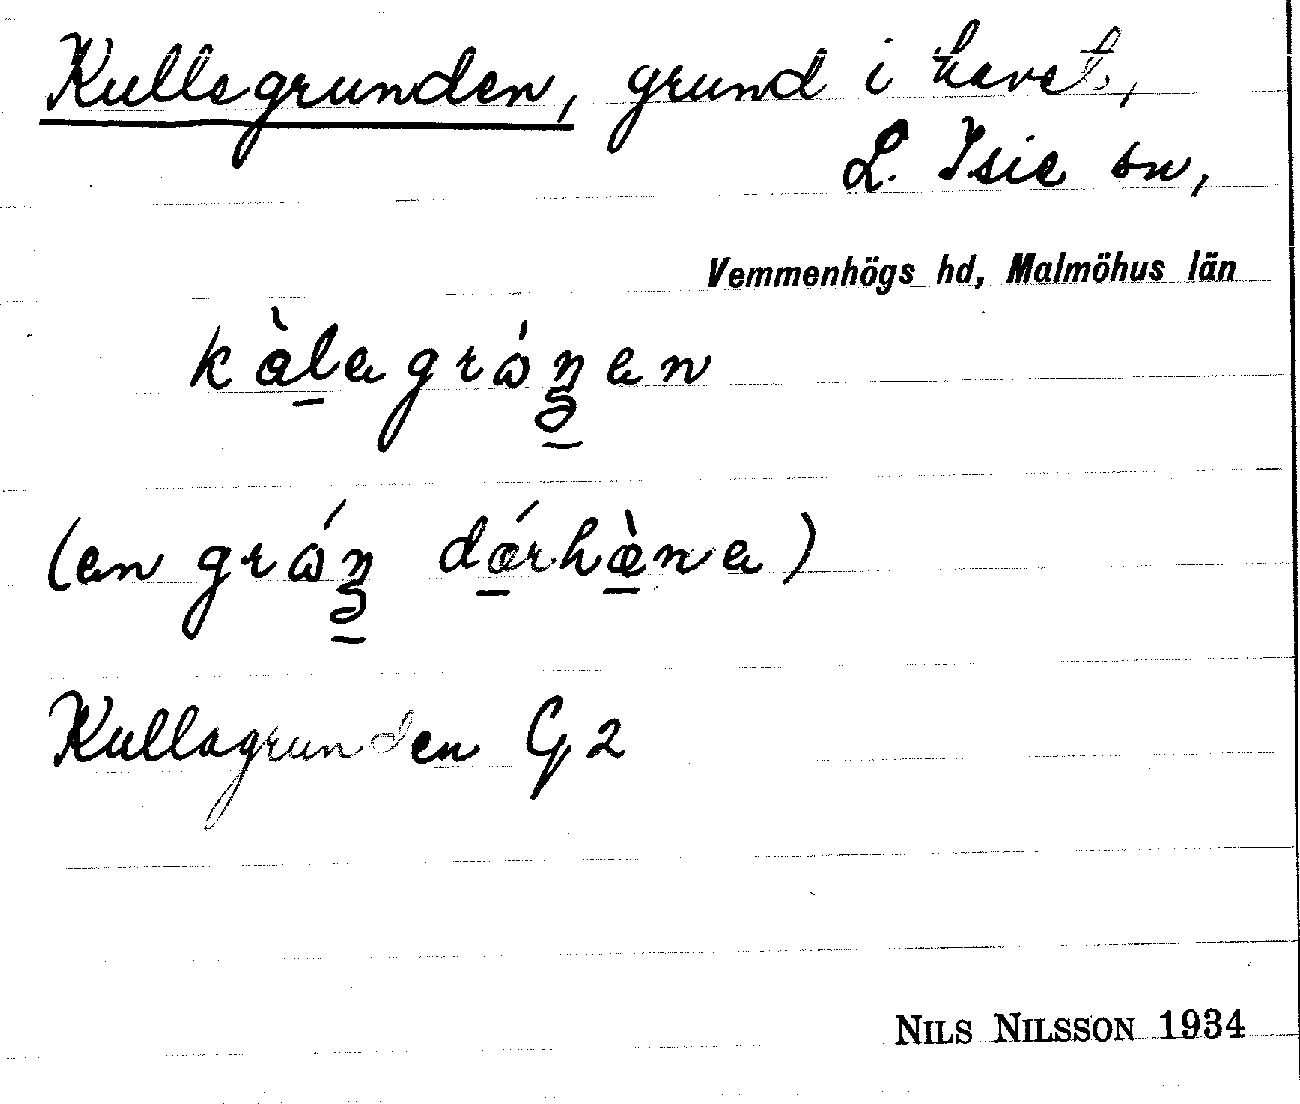 Kullegrunden, grund i havet,
L. Isie sn,
Vemmenhögs hd, Malmöhus län
kàlagrón̡an
(en gró̡n dǿrhæ̀na)
Kullagrunden G2
NILS NILSSON 1934